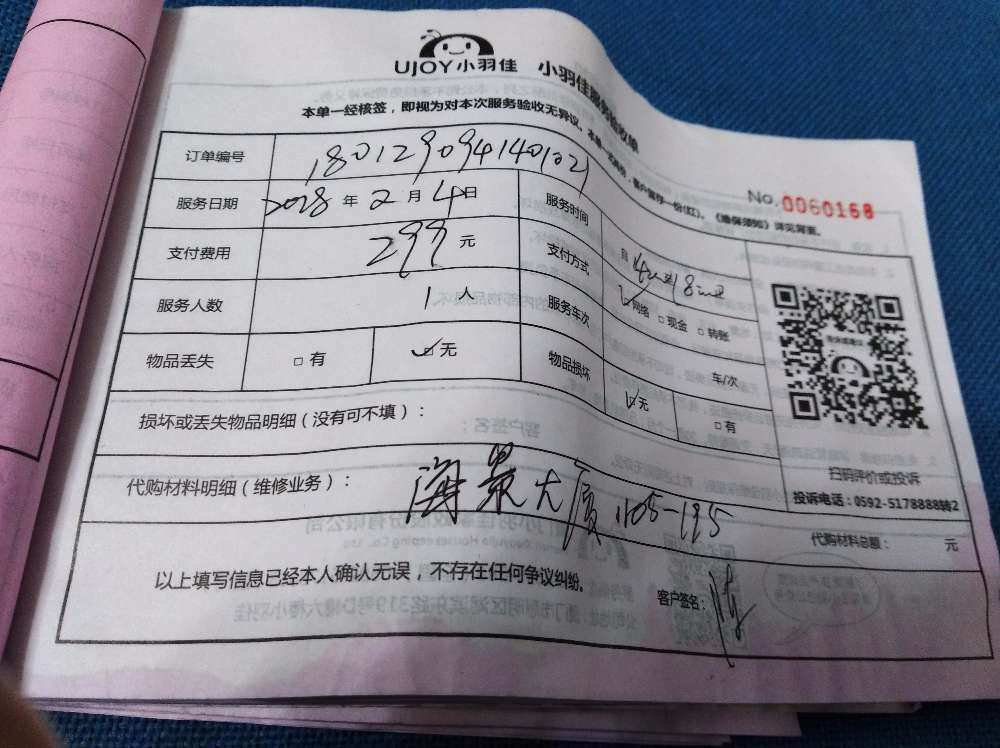 UJOY小羽佳 小羽佳服务验收单
本单一经核签，即视为对本次服务验收无异议。本单一式两份，客户留存一份(红)。《维保须知》详见背面。
No.0060168
订单编号 180129094140102
服务日期 2018 年 2 月 4 日 服务时间 自 14:00 至 18:00
支付费用 299 元 支付方式 ☑网络 □现金 □转账
服务人数 1 人 服务车次 车/次
物品丢失 □有 ☑无 物品损坏 ☑无 □有
损坏或丢失物品明细（没有可不填）：
扫码评价或投诉
投诉电话：0592-5178888转2
代购材料明细（维修业务）： 海景大厦 1105-195
代购材料总额： 元
以上填写信息已经本人确认无误，不存在任何争议纠纷。 客户签名：